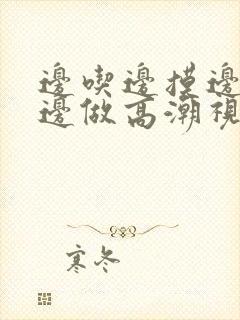 邊喫邊摸邊
邊做高潮視
寒冬